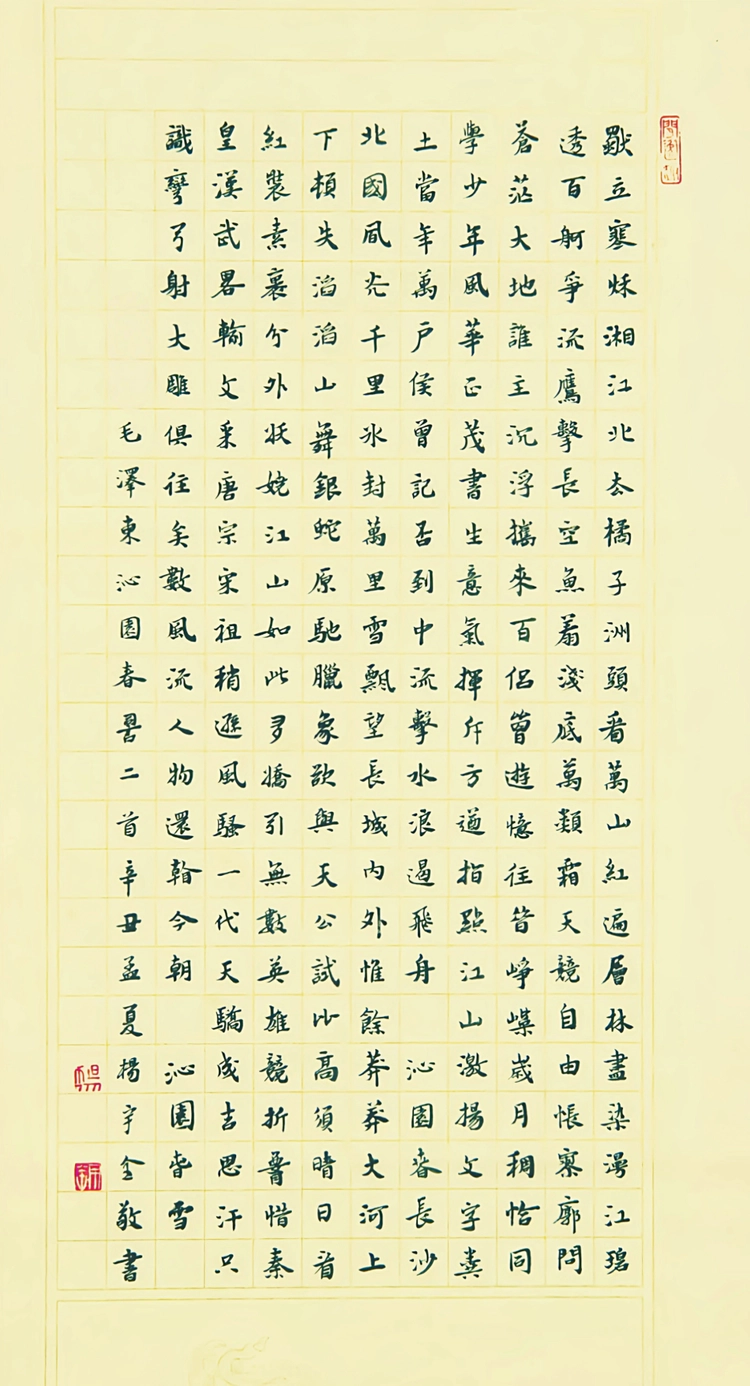 獨立寒秋湘江北去橘子洲頭看萬山紅遍層林盡染漫江碧
透百舸爭流鷹擊長空魚翔淺底萬類霜天競自由悵寥廓問
蒼茫大地誰主沉浮攜來百侶曾遊憶往昔崢嶸歲月稠恰同
學少年風華正茂書生意氣揮斥方遒指點江山激揚文字糞
土當年萬戶侯曾記否到中流擊水浪遏飛舟 沁園春長沙
北國風光千里冰封萬里雪飄望長城內外惟餘莽莽大河上
下頓失滔滔山舞銀蛇原馳臘象欲與天公試比高須晴日看
紅裝素裹分外妖嬈江山如此多嬌引無數英雄競折腰惜秦
皇漢武略輸文采唐宗宋祖稍遜風騷一代天驕成吉思汗只
識彎弓射大雕俱往矣數風流人物還看今朝 沁園春雪
毛澤東沁園春詞二首辛丑孟夏楊宇全敬書